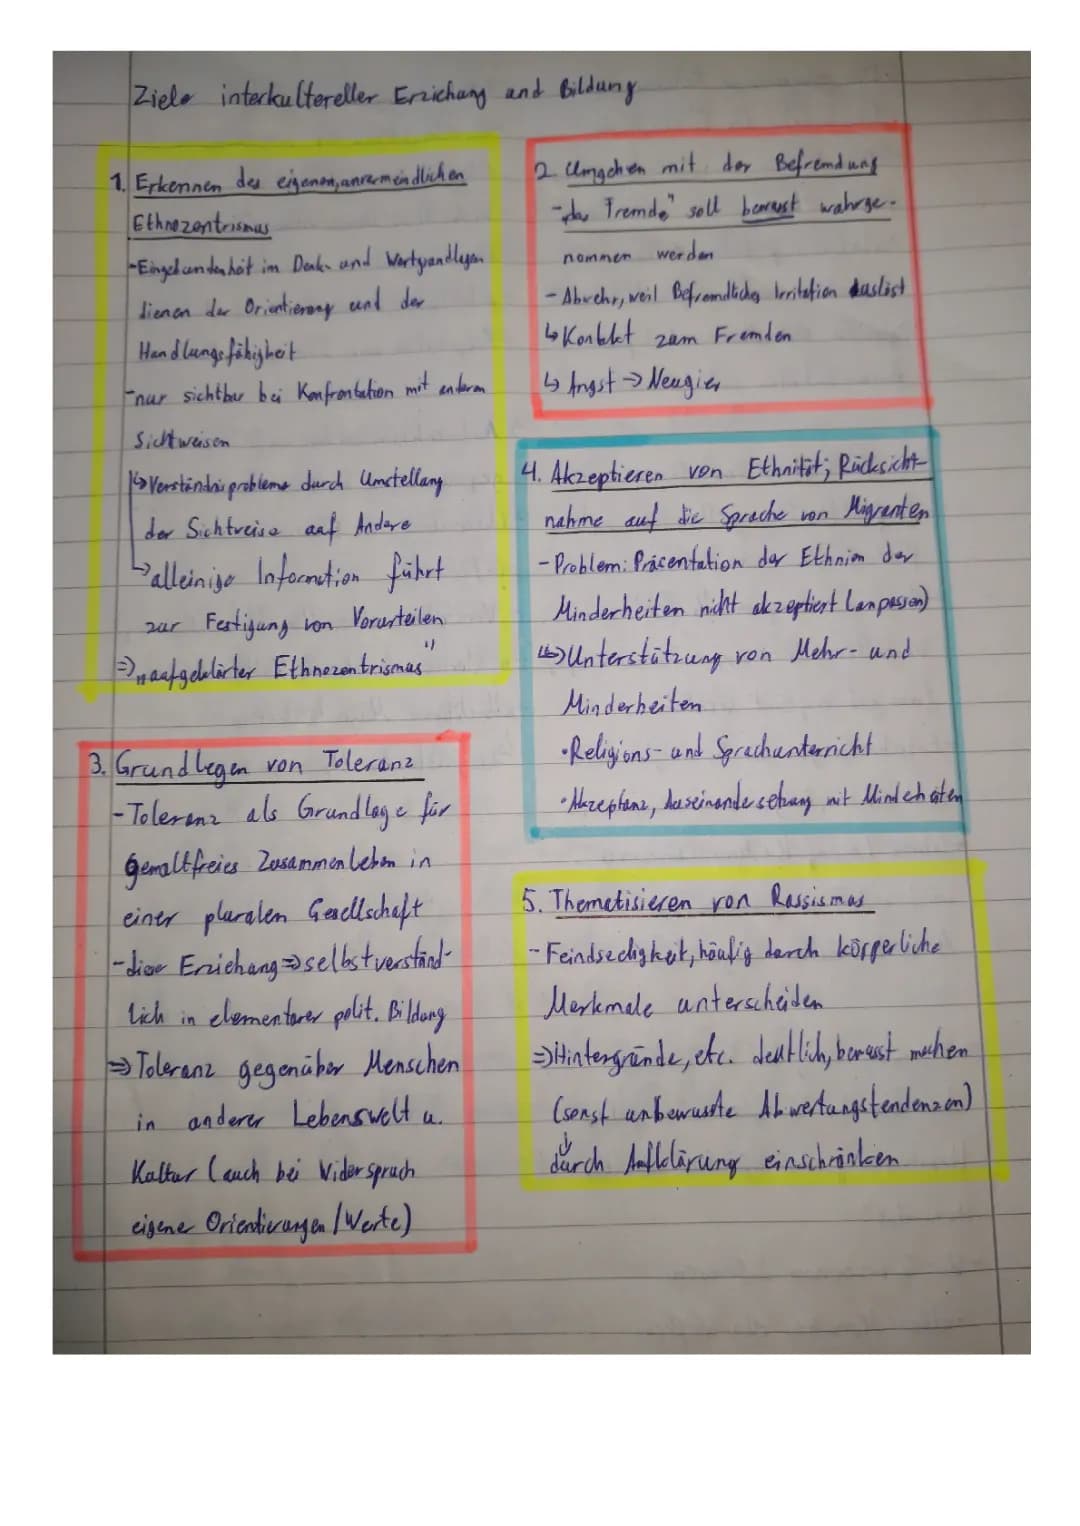 Ziele interkultereller Erziehung und Bildung
1. Erkennen des eigenen, unvermeidlichen
Ethnozentrismus
- Eingebundenheit im Denk- und Wertgrundlagen
dienen der Orientierung und der
Handlungsfähigkeit
- nur sichtbar bei Konfrontation mit anderen
Sichtweisen
↳ Verständnisprobleme durch Umstellung
der Sichtweise auf Andere
↳ alleinige Information führt
zur Festigung von Vorurteilen
⇒ „aufgeklärter Ethnozentrismus"
2. Umgehen mit der Befremdung
- „das Fremde" soll bewusst wahrge-
nommen werden
- Abwehr, weil Befremdliches Irritation auslöst
↳ Kontakt zum Fremden
↳ Angst → Neugier
3. Grundlegen von Toleranz
- Toleranz als Grundlage für
gewaltfreies Zusammenleben in
einer pluralen Gesellschaft
- diese Erziehung ⇒ selbstverständ-
lich in elementarer polit. Bildung
⇒ Toleranz gegenüber Menschen
in anderer Lebenswelt u.
Kultur (auch bei Widerspruch
eigener Orientierungen/Werte)
4. Akzeptieren von Ethnität; Rücksicht-
nahme auf die Sprache von Migranten
- Problem: Präsentation der Ethnien der
Minderheiten nicht akzeptiert (anpassen)
↳ Unterstützung von Mehr- und
Minderheiten
• Religions- und Sprachunterricht
• Akzeptanz, Auseinandersetzung mit Mindeheiten
5. Thematisieren von Rassismus
- Feindseeligkeit, häufig durch körperliche
Merkmale unterscheiden
⇒ Hintergründe, etc. deutlich, bewusst machen
(sonst unbewusste Abwertungstendenzen)
↓
durch Aufklärung einschränken